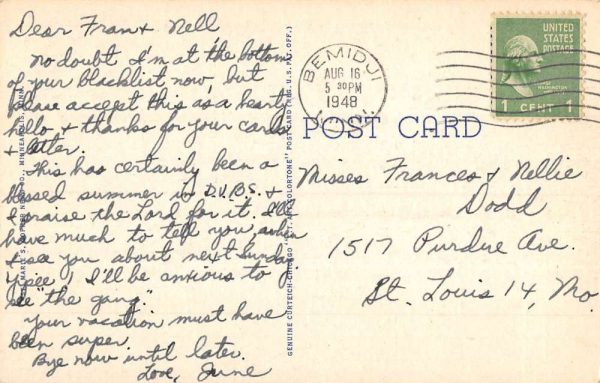 Dear Fran & Nell
No doubt I'm at the bottom
of your blacklist now, but
please accept this as a hearty
hello & thanks for your cards
& letter.
This has certainly been a
blessed summer in D.V.B.S. &
I praise the Lord for it. I'll
have much to tell you when
I see you about next Sunday.
Yipee! I'll be anxious to
see "the gang".
Your vacation must have
been super.
Bye now until later.
Love, June
GENUINE CURTEICH-CHICAGO "C.T. ART-COLORTONE" POST CARD (REG. U.S. PAT. OFF.)
BEMIDJI
AUG 16
5 30 PM
1948
MINN.
UNITED
STATES
POSTAGE
WASHINGTON
1 CENT 1
POST CARD
Misses Frances & Nellie
Dodd
1517 Purdue Ave.
St. Louis 14, Mo.